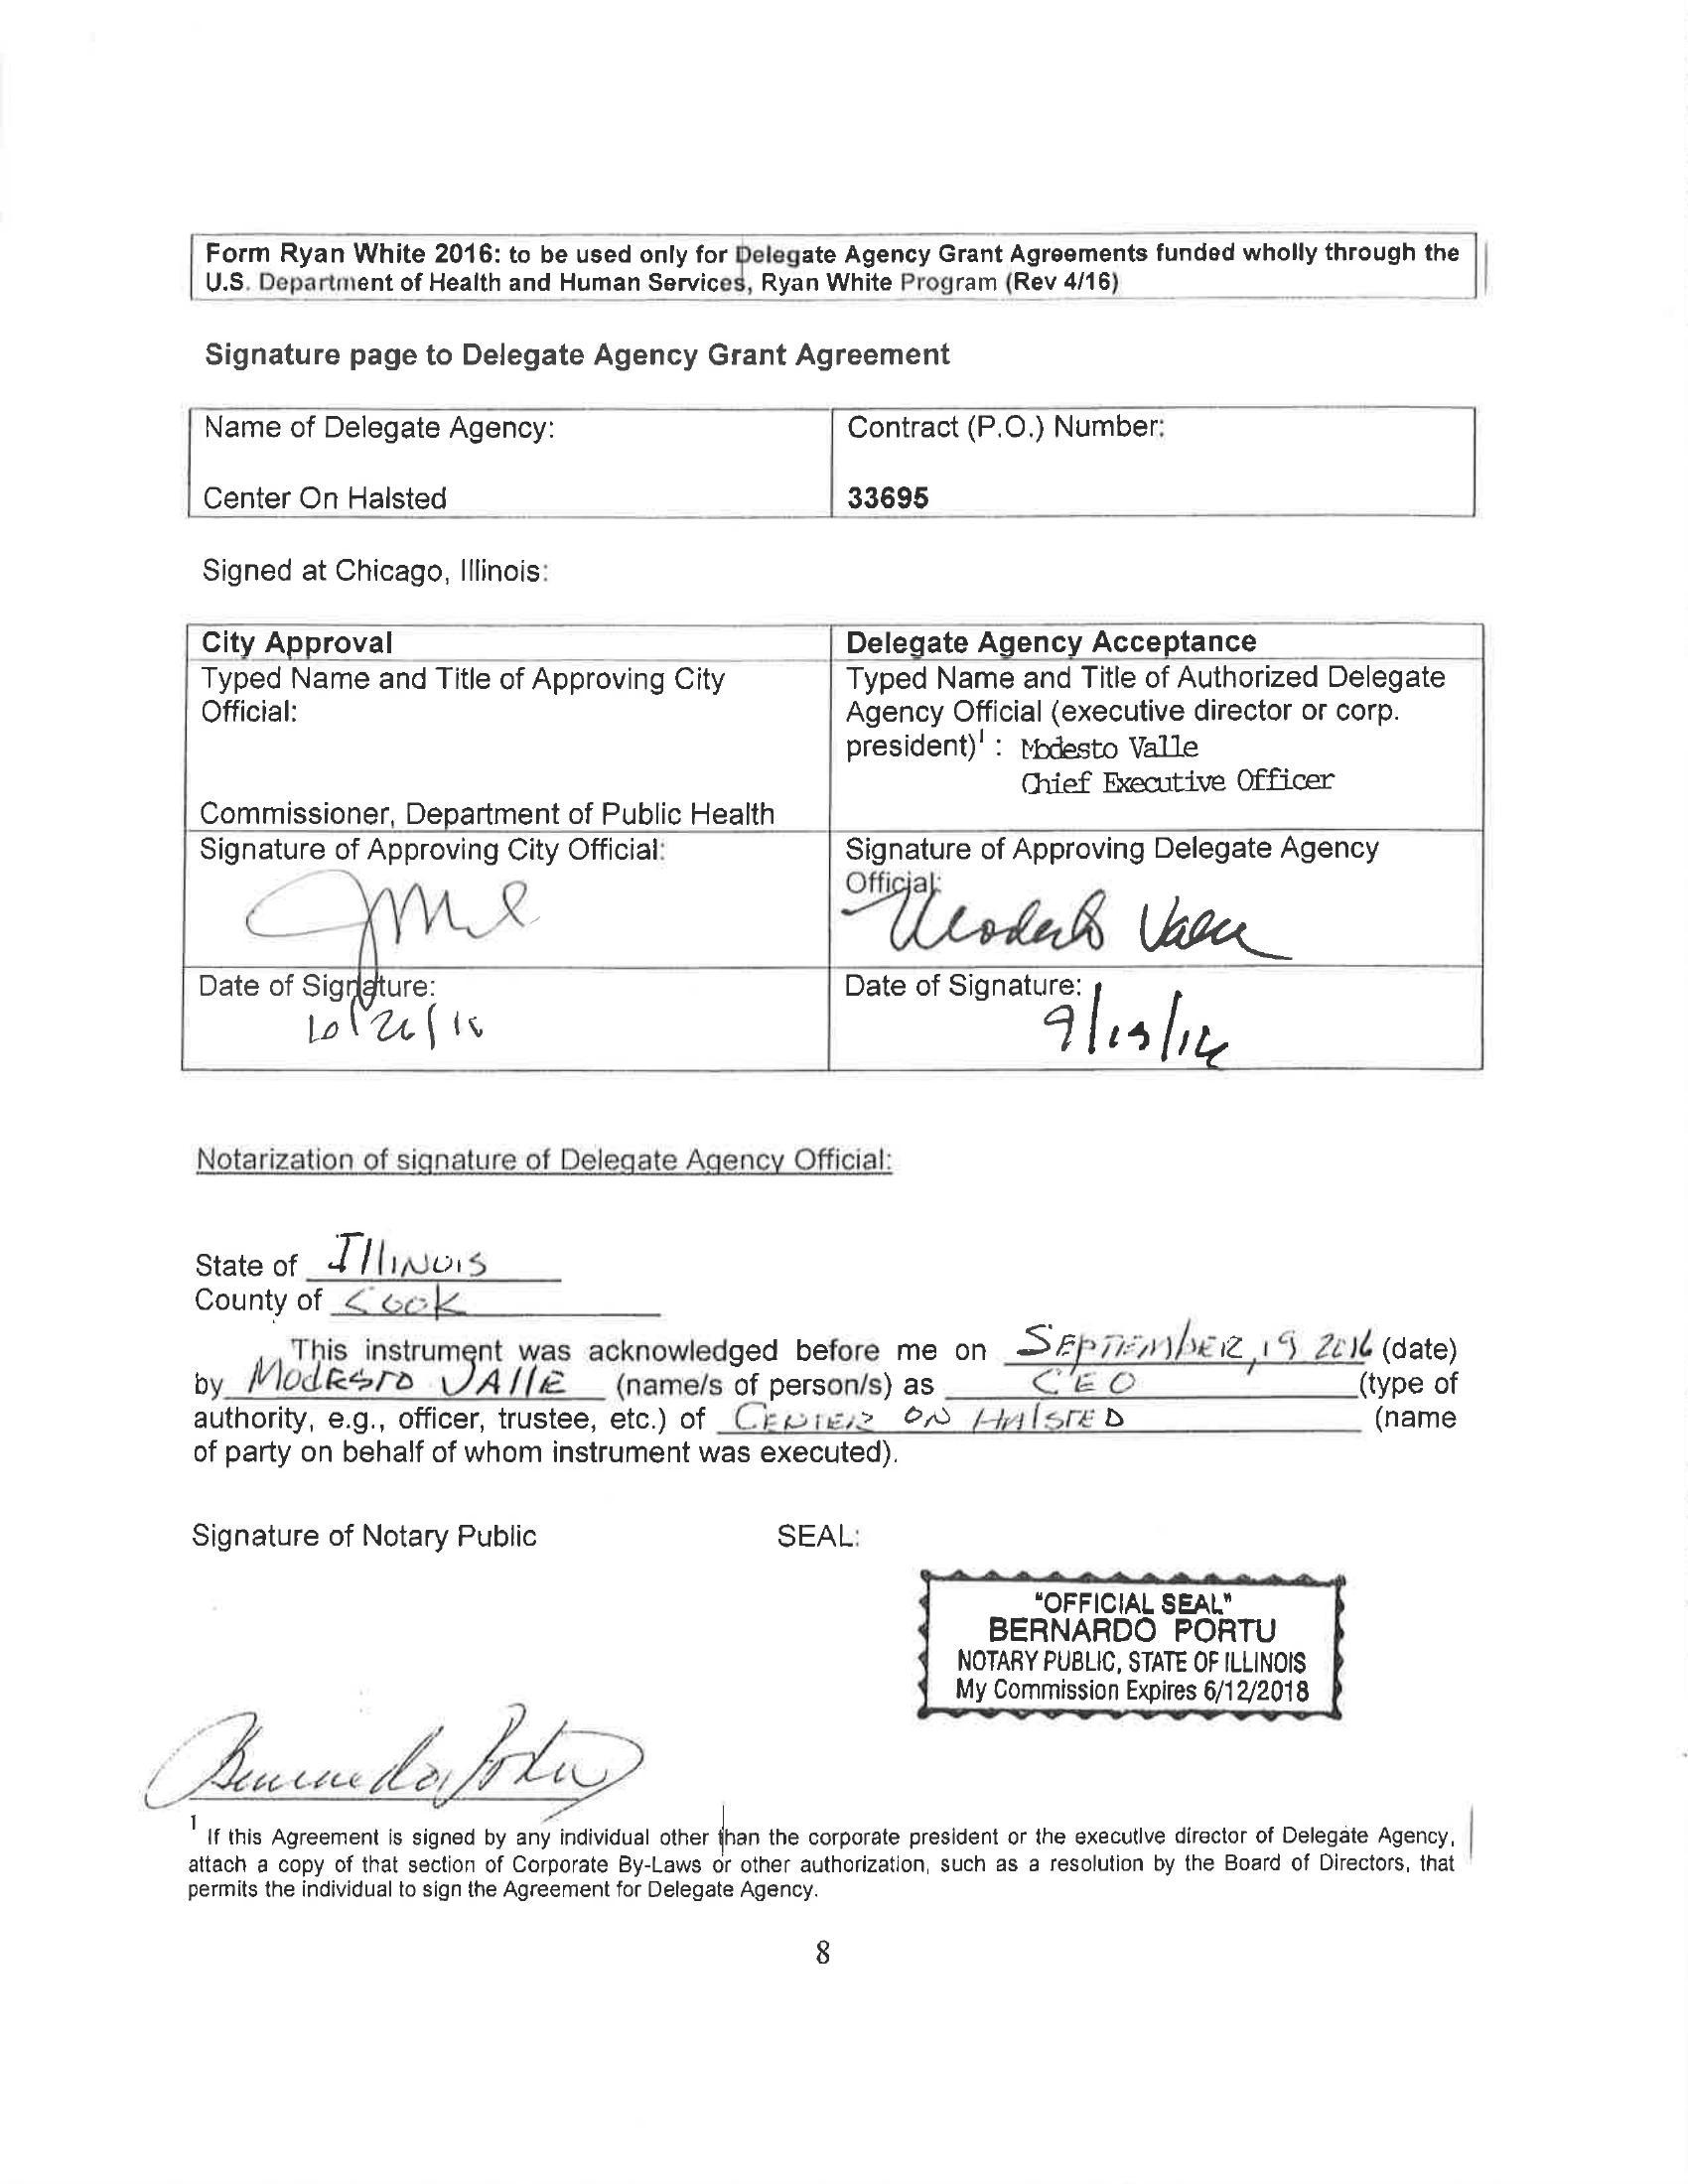 Form Ryan White 2016: to be used only for Delegate Agency Grant Agreements funded wholly through the
U.S. Department of Health and Human Services, Ryan White Program (Rev 4/16)
Signature page to Delegate Agency Grant Agreement
Name of Delegate Agency:
Center On Halsted
Contract (P.O.) Number:
33695
Signed at Chicago, Illinois:
City Approval
Typed Name and Title of Approving City
Official:
Commissioner, Department of Public Health
Signature of Approving City Official:
Date of Signature:
10/26/16
Delegate Agency Acceptance
Typed Name and Title of Authorized Delegate
Agency Official (executive director or corp.
president)1 : Modesto Valle
Chief Executive Officer
Signature of Approving Delegate Agency
Official:
Modesto Valle
Date of Signature:
9/19/16
Notarization of signature of Delegate Agency Official:
State of IllINOIS
County of Cook
This instrument was acknowledged before me on SEPTEMbER, 19 2016 (date)
by ModESTO VAllE (name/s of person/s) as CEO (type of
authority, e.g., officer, trustee, etc.) of CENTER ON HAlSTED (name
of party on behalf of whom instrument was executed).
Signature of Notary Public
SEAL:
"OFFICIAL SEAL"
BERNARDO PORTU
NOTARY PUBLIC, STATE OF ILLINOIS
My Commission Expires 6/12/2018
Bernardo Portu
1 If this Agreement is signed by any individual other than the corporate president or the executive director of Delegate Agency,
attach a copy of that section of Corporate By-Laws or other authorization, such as a resolution by the Board of Directors, that
permits the individual to sign the Agreement for Delegate Agency.
8